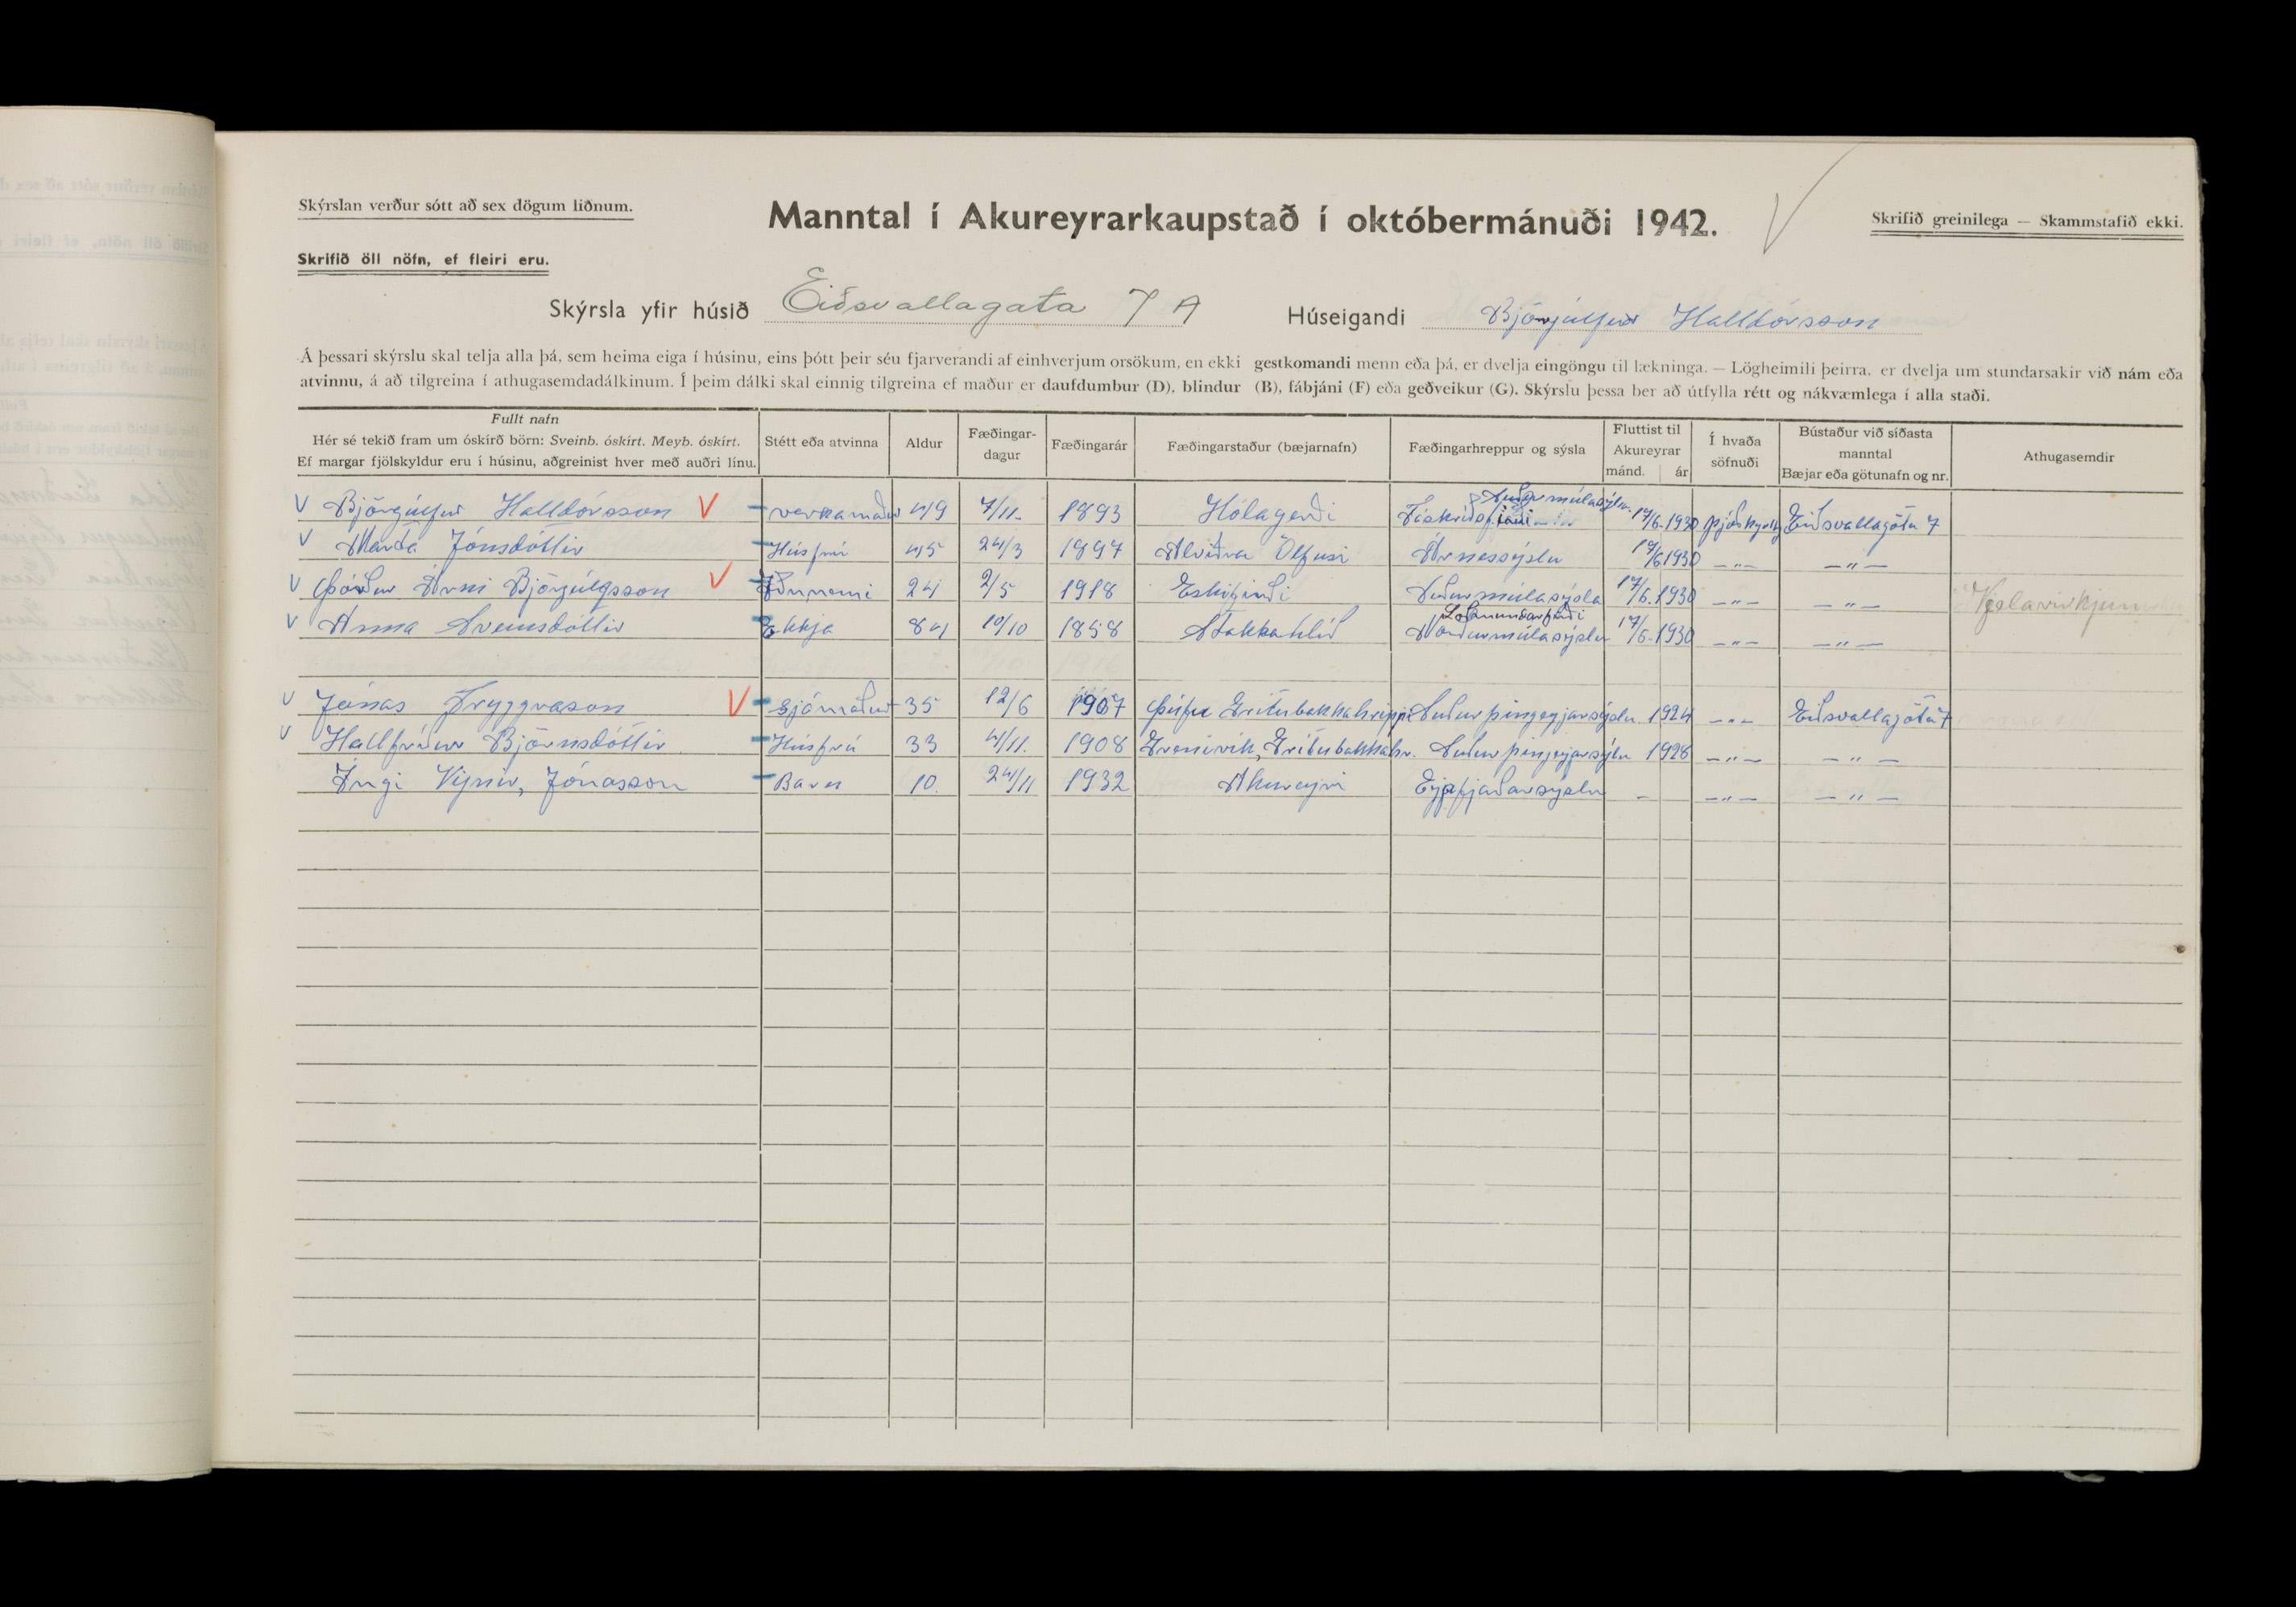 Skýrslan verður sótt að sex dögum liðnum.
Manntal í Akureyrarkaupstað í októbermánuði 1942.
Skrifið greinilega — Skammstafið ekki.
Skrifið öll nöfn, ef fleiri eru.
Skýrsla yfir húsið Eiðsvallagata 7 A Húseigandi Björgúlfur Halldórsson
Á þessari skýrslu skal telja alla þá, sem heima eiga í húsinu, eins þótt þeir séu fjarverandi af einhverjum orsökum, en ekki gestkomandi menn eða þá, er dvelja eingöngu til lækninga. — Lögheimili þeirra, er dvelja um stundarsakir við nám eða
atvinnu, á að tilgreina í athugasemdadálkinum. Í þeim dálki skal einnig tilgreina ef maður er daufdumbur (D), blindur (B), fábjáni (F) eða geðveikur (G). Skýrslu þessa ber að útfylla rétt og nákvæmlega í alla staði.
Fullt nafn
Hér sé tekið fram um óskírð börn: Sveinb. óskírt. Meyb. óskírt.
Ef margar fjölskyldur eru í húsinu, aðgreinist hver með auðri línu.
Stétt eða atvinna
Aldur
Fæðingar-
dagur
Fæðingarár
Fæðingarstaður (bæjarnafn)
Fæðingarhreppur og sýsla
Fluttist til
Akureyrar
mánd. ár
Í hvaða
söfnuði
Bústaður við síðasta
manntal
Bæjar eða götunafn og nr.
Athugasemdir
V Björgúlfur Halldórsson V verkamaður 49 7/11. 1893 Hólagerði Fáskrúðsfirði Suðurmúlasýslu 17/6-1930 þjóðkyrkj Eiðsvallagötu 7
V Marta Jónsdóttir Húsfrú 45 24/3 1897 Alviðra Ölfusi Árnessýslu 17/6 1930 —"— —"—
V Þórður Árni Björgúlfsson V Iðnnemi 24 2/5 1918 Eskifirði Suðurmúlasýsla 17/6.1930 —"— —"— Vjelavirkjun
V Anna Sveinsdóttir Ekkja 84 10/10 1858 Stakkahlíð Loðmundarfirði Norðurmúlasýslu 17/6-1930 —"— —"—
V Jónas Tryggvason V Sjómaður 35 12/6 1907 Þúfu Grítubakkahreppi Suðurþingeyjarsýslu 1924 —"— Eiðsvallagötu 7
V Hallfríður Björnsdóttir Húsfrú 33 4/11. 1908 Grenivík, Grítubakkahr. Suðurþingeyjarsýslu 1928 —"— —"—
Ingi Vignir, Jónasson Barn 10. 24/11 1932 Akureyri Eyjafjarðarsýslu - —"— —"—